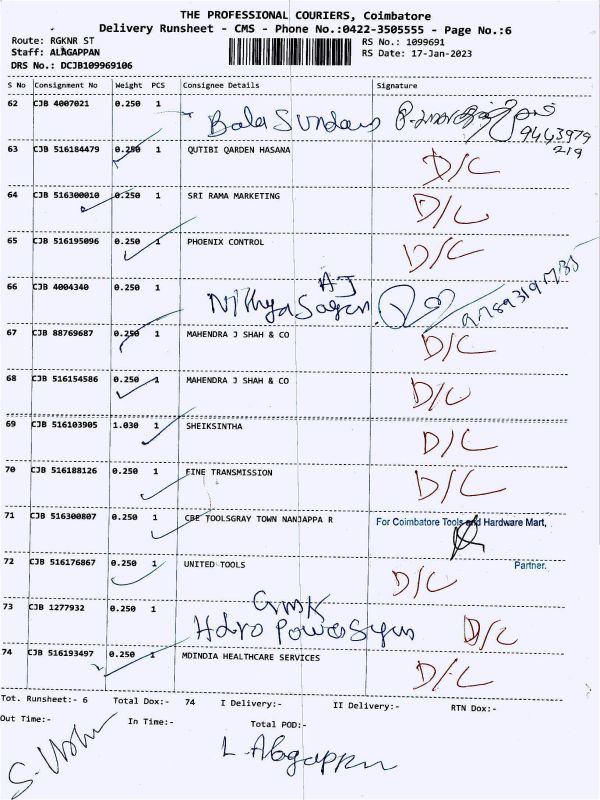 THE PROFESSIONAL COURIERS, Coimbatore
Delivery Runsheet - CMS - Phone No.:0422-3505555 - Page No.:6
Route: RGKNR ST
Staff: ALAGAPPAN
DRS No.: DCJB109969106
RS No.: 1099691
RS Date: 17-Jan-2023
S No Consignment No Weight PCS Consignee Details Signature
62 CJB 4007021 0.250 1 Bala Sundar
9443979
219
63 CJB 516184479 0.250 1 QUTIBI QARDEN HASANA D/C
64 CJB 516300010 0.250 1 SRI RAMA MARKETING D/C
65 CJB 516195096 0.250 1 PHOENIX CONTROL D/C
66 CJB 4004340 0.250 1 Nithya Sagen AJ
67 CJB 88769687 0.250 1 MAHENDRA J SHAH & CO D/C
68 CJB 516154586 0.250 1 MAHENDRA J SHAH & CO D/C
69 CJB 516103905 1.030 1 SHEIKSINTHA D/C
70 CJB 516188126 0.250 1 FINE TRANSMISSION D/C
71 CJB 516300807 0.250 1 CBE TOOLSGRAY TOWN NANJAPPA R For Coimbatore Tools and Hardware Mart,
Partner.
72 CJB 516176867 0.250 1 UNITED TOOLS D/C
73 CJB 1277932 0.250 1 GMK
Hdro Power D/C
74 CJB 516193497 0.250 1 MDINDIA HEALTHCARE SERVICES D/C
Tot. Runsheet:- 6 Total Dox:- 74 I Delivery:- II Delivery:- RTN Dox:-
Out Time:- In Time:- Total POD:-
L. Alagappan